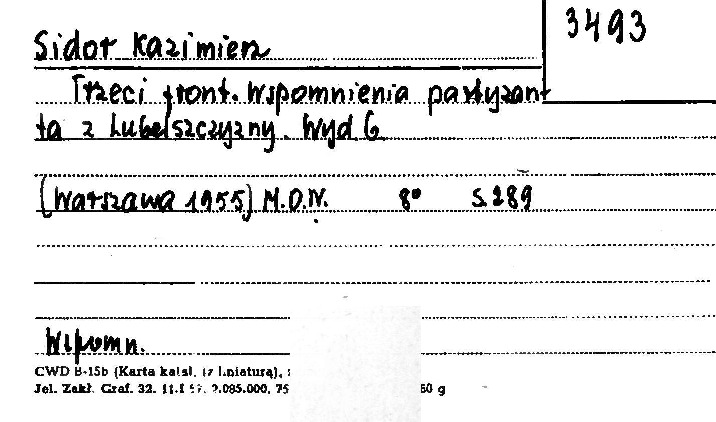 3493
Sidor Kazimierz
Trzeci front. Wspomnienia partyzan-
ta z Lubelszczyzny. Wyd. 6
(Warszawa 1955) M.O.N. 8° S. 289
Wspomn.
CWD B-15b (Karta katal. (z liniaturą),
Jel. Zakł. Graf. 32. 2.085.000, 75
60 g